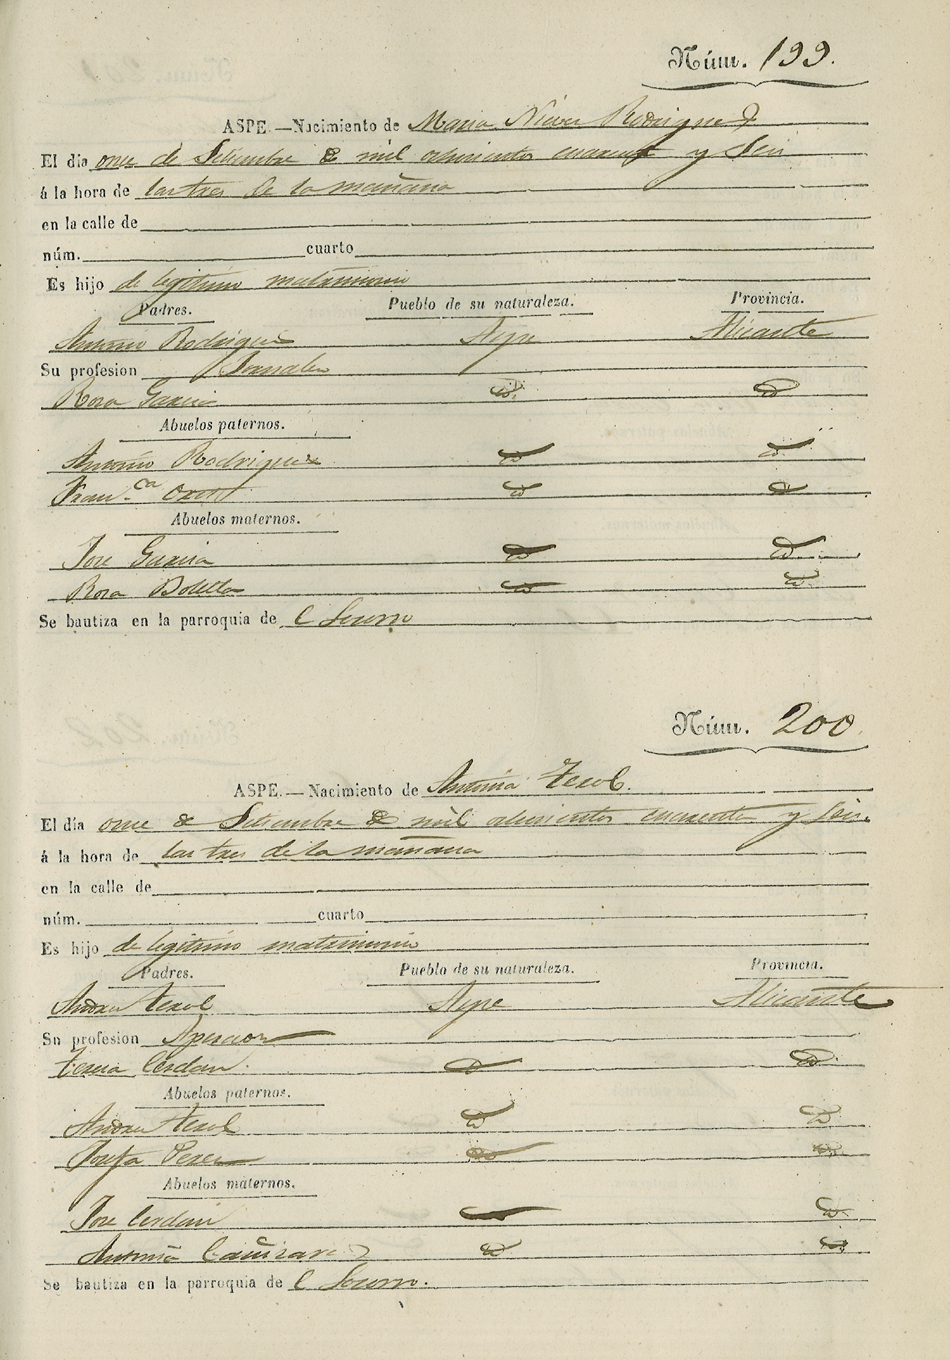 Núm. 199.
ASPE.—Nacimiento de Maria Nieves Rodriguez
El día once de Setiembre de mil ochocientos cuarenta y seis
á la hora de las tres de la mañana
en la calle de
núm. cuarto
Es hijo de legitimo matrimonio
Padres. Pueblo de su naturaleza. Provincia.
Antonio Rodriguez Aspe Alicante
Su profesion Jornalero
Rosa Garcia id. id
Abuelos paternos.
Antonio Rodriguez id id
Fran.ca id id
Abuelos maternos.
Jose Garcia id id
Rosa Botella id id
Se bautiza en la parroquia de el Socorro
Núm. 200.
ASPE.—Nacimiento de Antonia Terol.
El día once de Setiembre de mil ochocientos cuarenta y seis.
á la hora de las tres de la mañana
en la calle de
núm. cuarto
Es hijo de legitimo matrimonio
Padres. Pueblo de su naturaleza. Provincia.
Andres Terol Aspe Alicante
Su profesion
Teresa Cerdan. id id
Abuelos paternos.
Andres Terol id id
Josefa Perez id id
Abuelos maternos.
Jose Cerdan id id
Antonia Cañizares id id
Se bautiza en la parroquia de el Socorro.